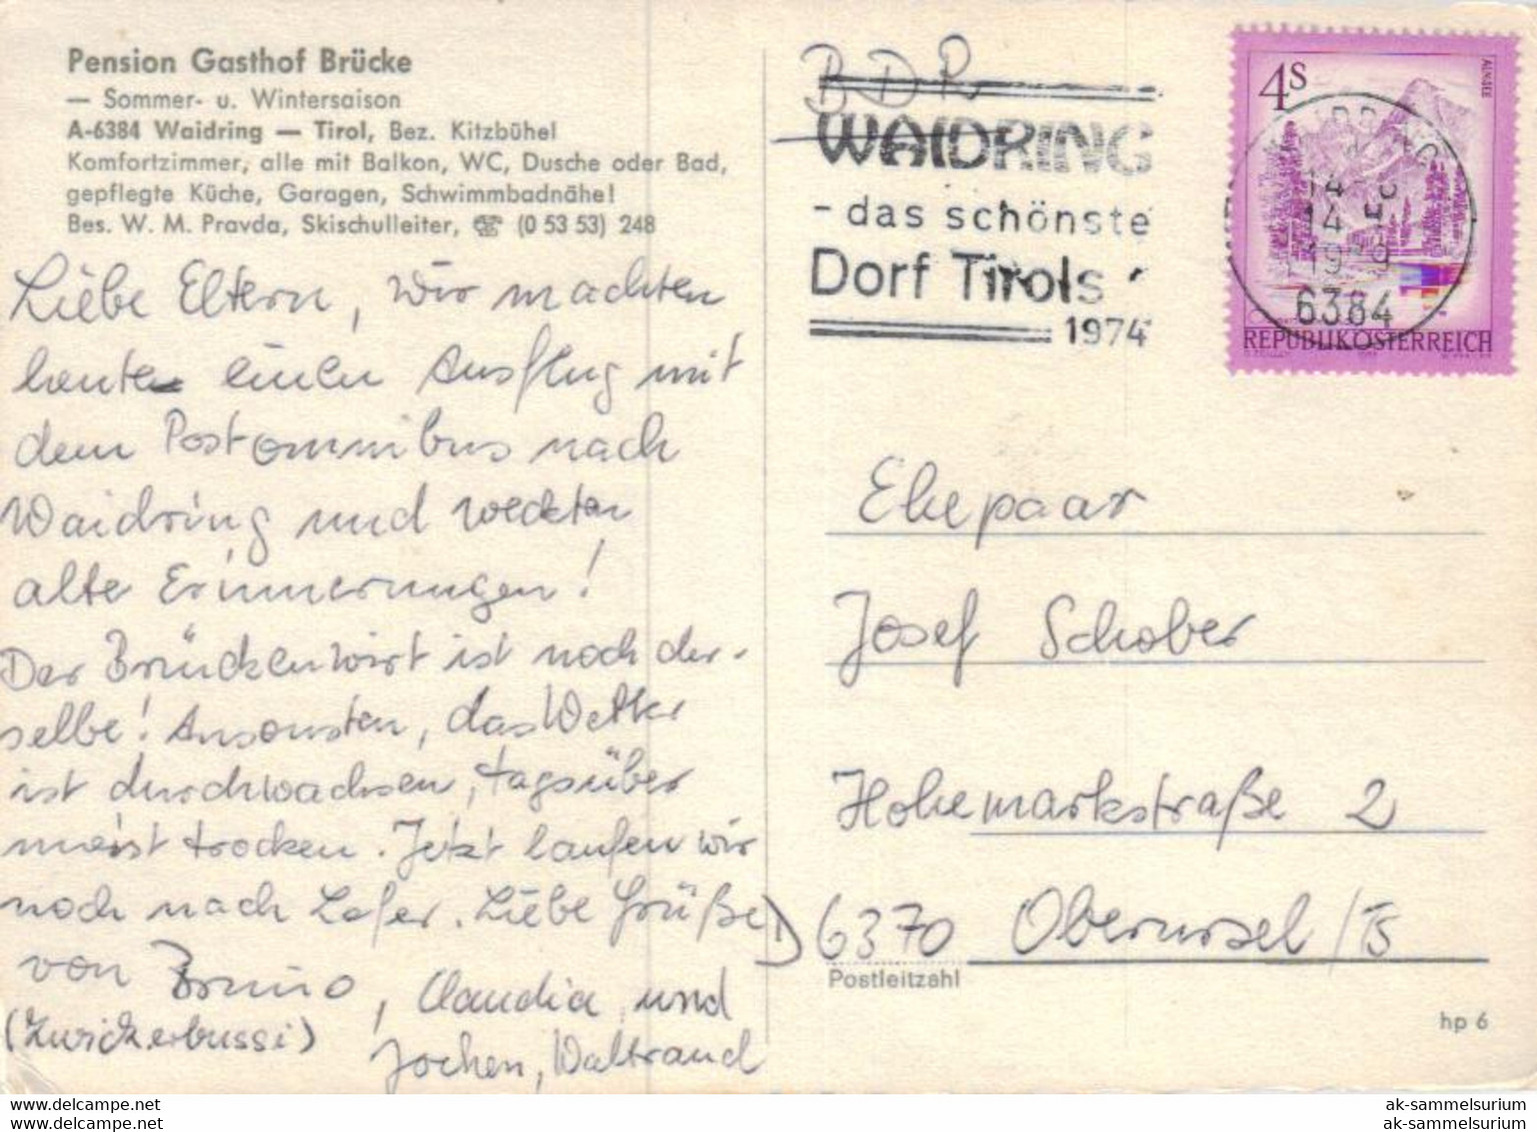 Pension Gasthof Brücke
— Sommer- u. Wintersaison
A-6384 Waidring — Tirol, Bez. Kitzbühel
Komfortzimmer, alle mit Balkon, WC, Dusche oder Bad,
gepflegte Küche, Garagen, Schwimmbadnähe!
Bes. W. M. Pravda, Skischulleiter, ☏ (0 53 53) 248
Liebe Eltern, wir machten
heute einen Ausflug mit
dem Postomnibus nach
Waidring und weckten
alte Erinnerungen!
Der Brückenwirt ist noch der-
selbe! Ansonsten, das Wetter
ist durchwachsen, tagsüber
meist trocken. Jetzt laufen wir
noch nach Lofer. Liebe Grüße
von Bruno, Claudia und
(Zwickerbussi) Jochen, Waltraud
BDR
WAIDRING
- das schönste
Dorf Tirols
1974
4S
ALMSEE
14
6384
REPUBLIK ÖSTERREICH
Ehepaar
Josef Schober
Hohemarkstraße 2
D 6370 Oberursel/Ts
Postleitzahl
hp 6
www.delcampe.net
www.delcampe.net
ak-sammelsurium
ak-sammelsurium